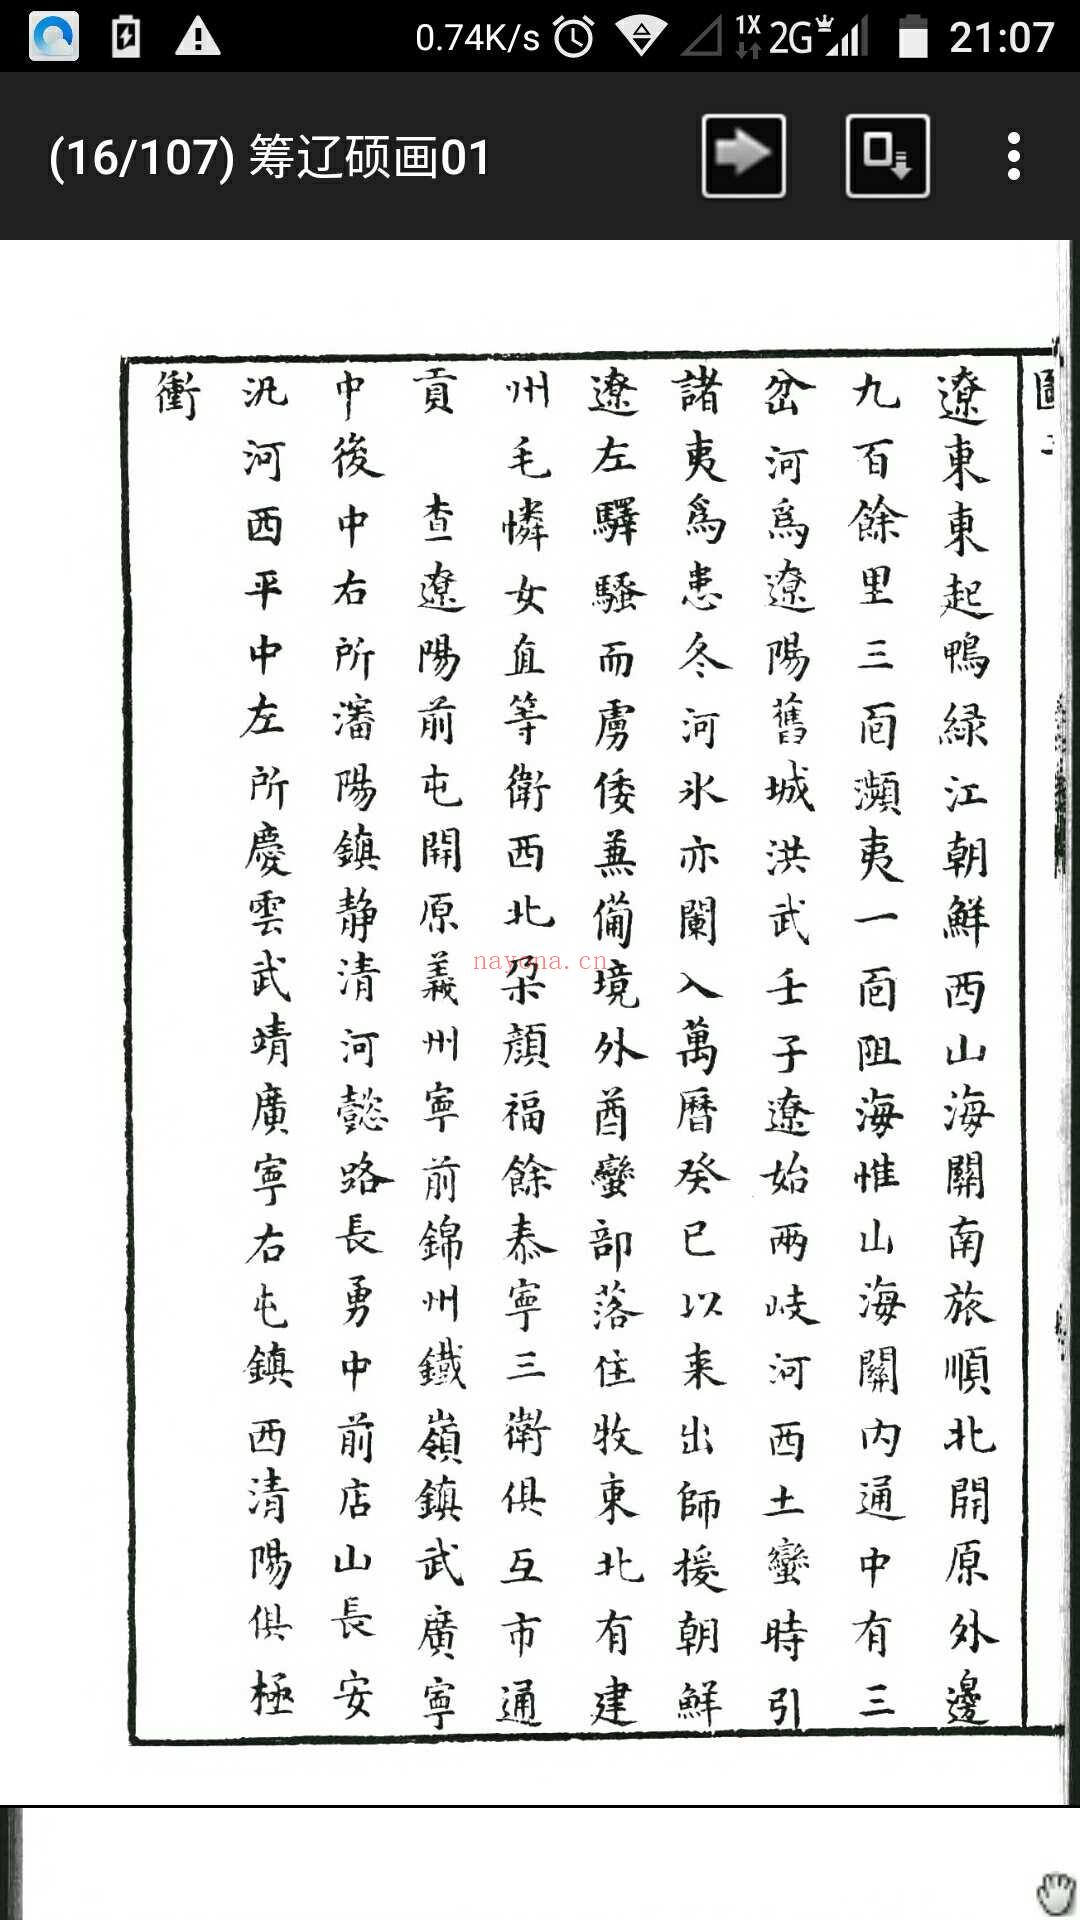 0.74K/s 1X 2G 21:07
(16/107) 筹辽硕画01
遼東東起鴨綠江朝鮮西山海關南旅順北開原外邊
九百餘里三面瀕夷一面阻海惟山海關內通中有三
岔河爲遼陽舊城洪武壬子遼始兩岐河西土蠻時引
諸夷爲患冬河氷亦闌入萬曆癸巳以来出師援朝鮮
遼左驛騷而虜倭兼備境外酋蠻部落住牧東北有建
州毛憐女直等衛西北朶顏福餘泰寧三衛俱互市通
貢 查遼陽前屯開原義州寧前錦州鐵嶺鎮武廣寧
中後中右所瀋陽鎮静清河懿路長勇中前店山長安
汎河西平中左所慶雲武靖廣寧右屯鎮西清陽俱極
衝
nayona.cn